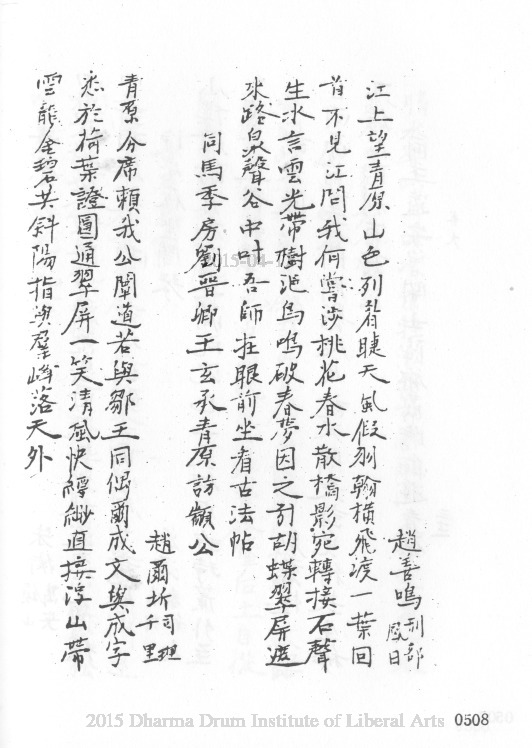 趙善鳴刑部
殿日
江上望青原山色列着睫天風假羽翰橫飛渡一葉回
首不見江問我何嘗涉桃花春水散橋影宛轉接石聲
生水言雲光帶樹浥鳥鳴破春夢因之引胡蝶翠屏遮
來路泉聲谷中叶吾師在眼前坐看古法帖
同馬季房劉晉卿王玄承青原訪顓公
趙爾圻司理
千里
青原分席賴我公闡道若與鄒王同偶爾成文與成字
悉於荷葉證圓通翠屏一笑清風快縹緲直接浮山帶
雲龍金碧共斜陽指與羣峰落天外
2015 Dharma Drum Institute of Liberal Arts 0508